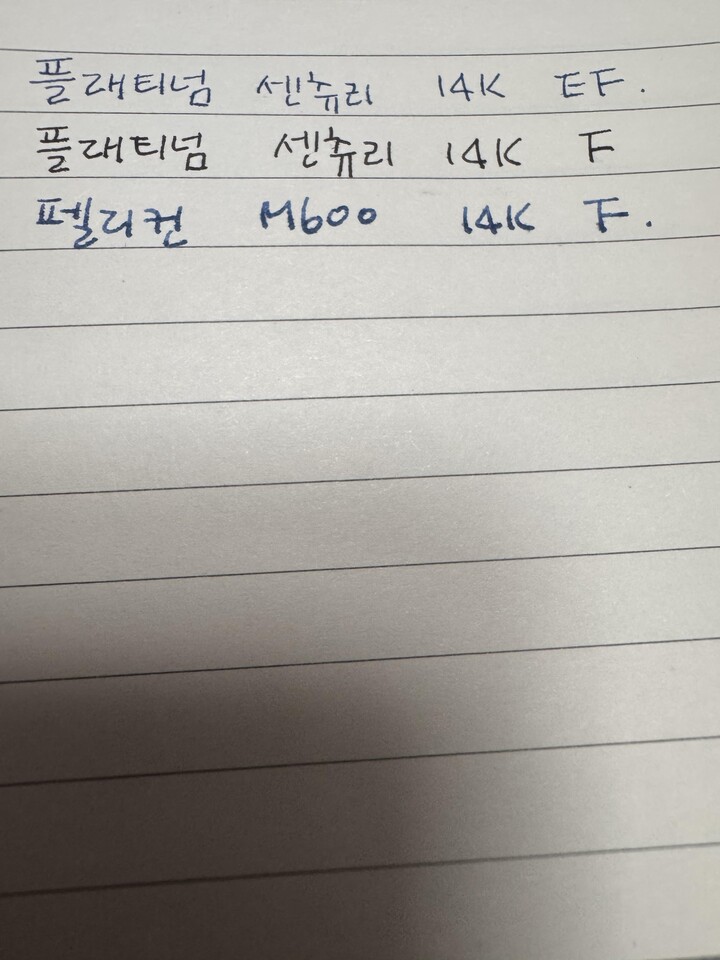 플래티넘 센츄리 14K EF.
플래티넘 센츄리 14K F
펠리컨 M600 14K F.